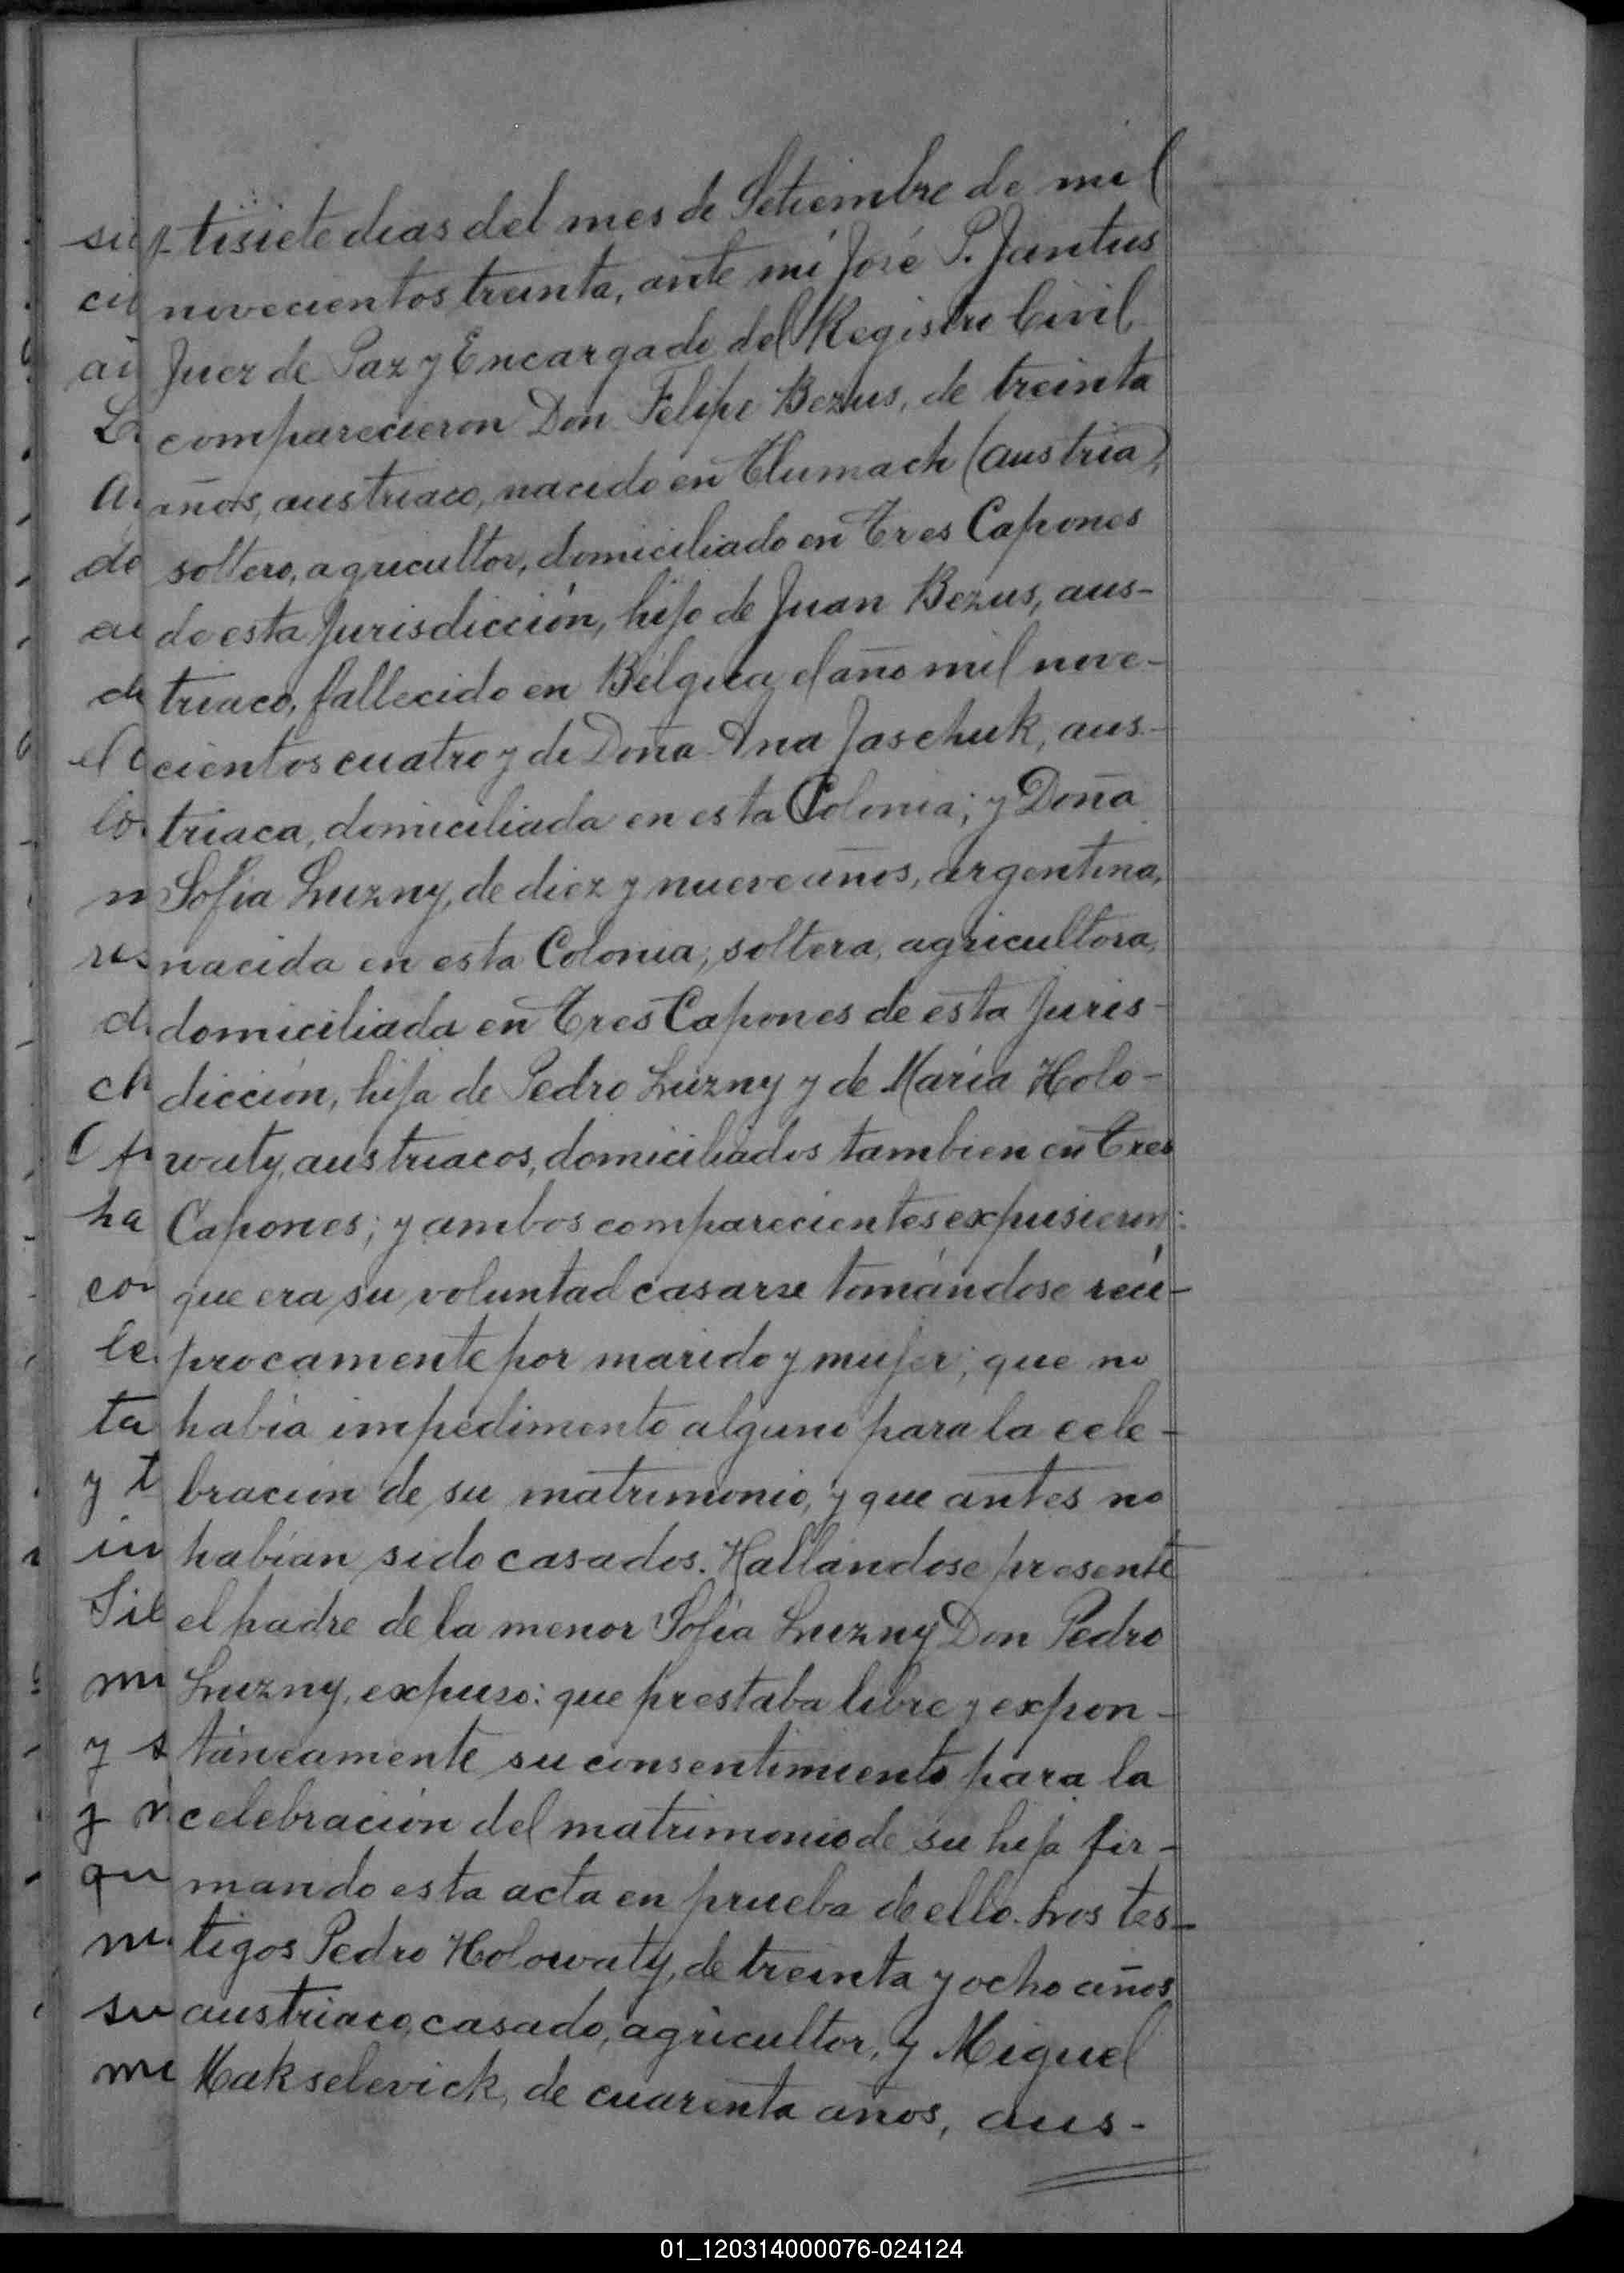 tisiete dias del mes de Setiembre de mil
novecientos treinta, ante mí José P. Jantus
Juez de Paz y Encargado del Registro Civil,
comparecieron Don Felipe Bezus, de treinta
años, austriaco, nacido en Tlumach (Austria),
soltero, agricultor, domiciliado en Tres Capones
de esta Jurisdicción, hijo de Juan Bezus, aus-
triaco, fallecido en Bélgica el año mil nove-
cientos cuatro y de Doña Ana Jaschuk, aus-
triaca, domiciliada en esta Colonia; y Doña
Sofía Luzny, de diez y nueve años, argentina,
nacida en esta Colonia, soltera, agricultora,
domiciliada en Tres Capones de esta Juris-
dicción, hija de Pedro Luzny y de María Holo-
waty, austriacos, domiciliados tambien en Tres
Capones; y ambos comparecientes expusieron:
que era su voluntad casarse tomándose recí-
procamente por marido y mujer; que no
había impedimento alguno para la cele-
bración de su matrimonio, y que antes no
habían sido casados. Hallándose presente
el padre de la menor Sofía Luzny Don Pedro
Luzny, expuso: que prestaba libre y expon-
táneamente su consentimiento para la
celebración del matrimonio de su hija fir-
mando esta acta en prueba de ello. Los tes-
tigos Pedro Holowaty, de treinta y ocho años,
austriaco, casado, agricultor, y Miguel
Makselevick, de cuarenta años, aus-
01_120314000076-024124